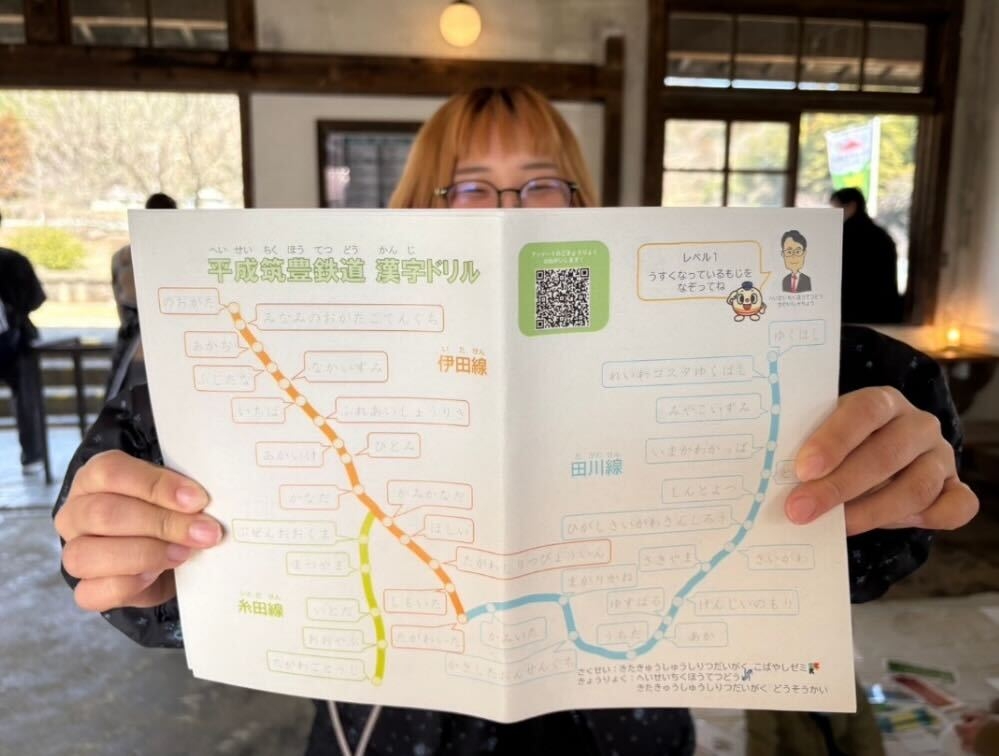 へいせいちくほうてつどう かんじ
平成筑豊鉄道 漢字ドリル
アンケートのごきょうりょく
おねがいします！
レベル1
うすくなっているもじを
なぞってね
へいせいちくほうてつどう
のおがた
みなみのおがたごてんぐち
あかぢ
ふじたな
なかいずみ
いちば
ふれあいしょうりき
あかいけ
ひとみ
かなだ
かみかなだ
ほしい
たがわしりつびょういん
しもいた
たがわいた
いたせん
伊田線
ぶぜんおおくま
まつやま
いとだ
おおやぶ
たがわごとうじ
いとだせん
糸田線
ゆくはし
れいわコスタゆくはし
みやこいずみ
いまがわかっぱ
と
しんとよつ
ひがしさいがわさんしろう
さいがわ
さきやま
げんじいのもり
ゆすばる
あか
うちだ
まがりかね
かきしたおんせんぐち
かみいた
たがわせん
田川線
さくせい：きたきゅうしゅうしりつだいがく こばやしゼミ
きょうりょく：へいせいちくほうてつどう
きたきゅうしゅうしりつだいがく どうそうかい